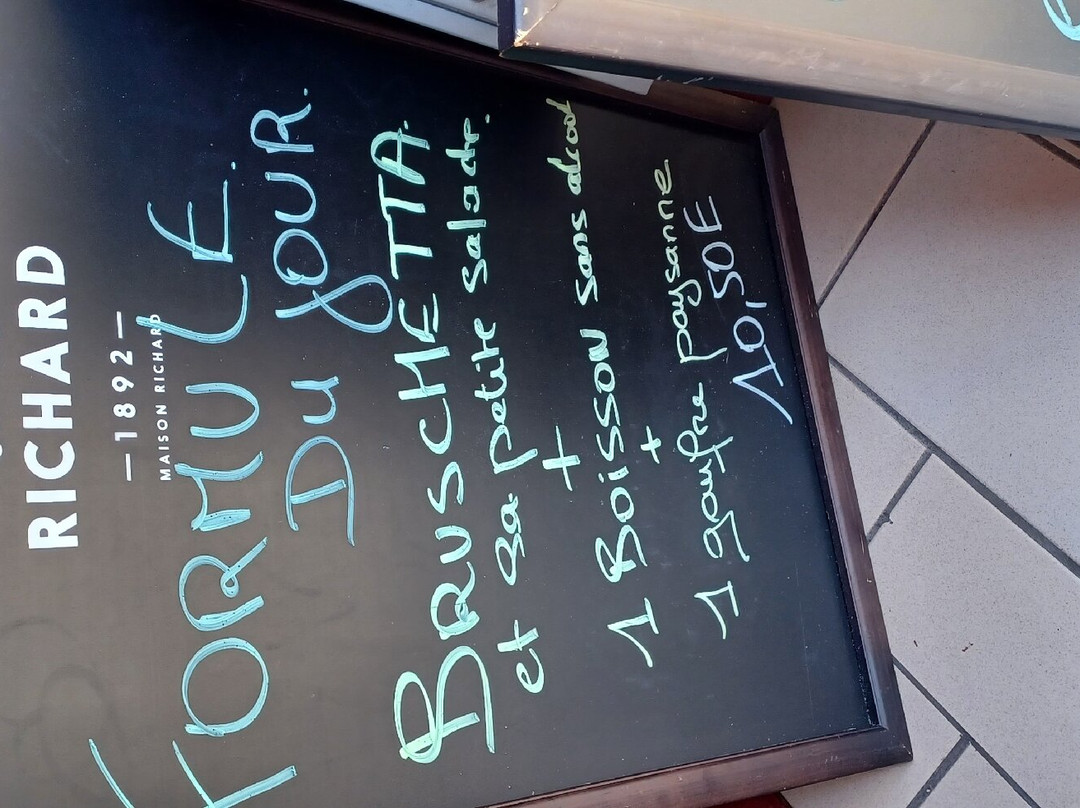 RICHARD
— 1892 —
MAISON RICHARD
FORMULE.
DU JOUR.
BRUSCHETTA.
et sa petite salade.
+
1 BOISSON sans alcool
+
1 gaufre paysanne
10,50E